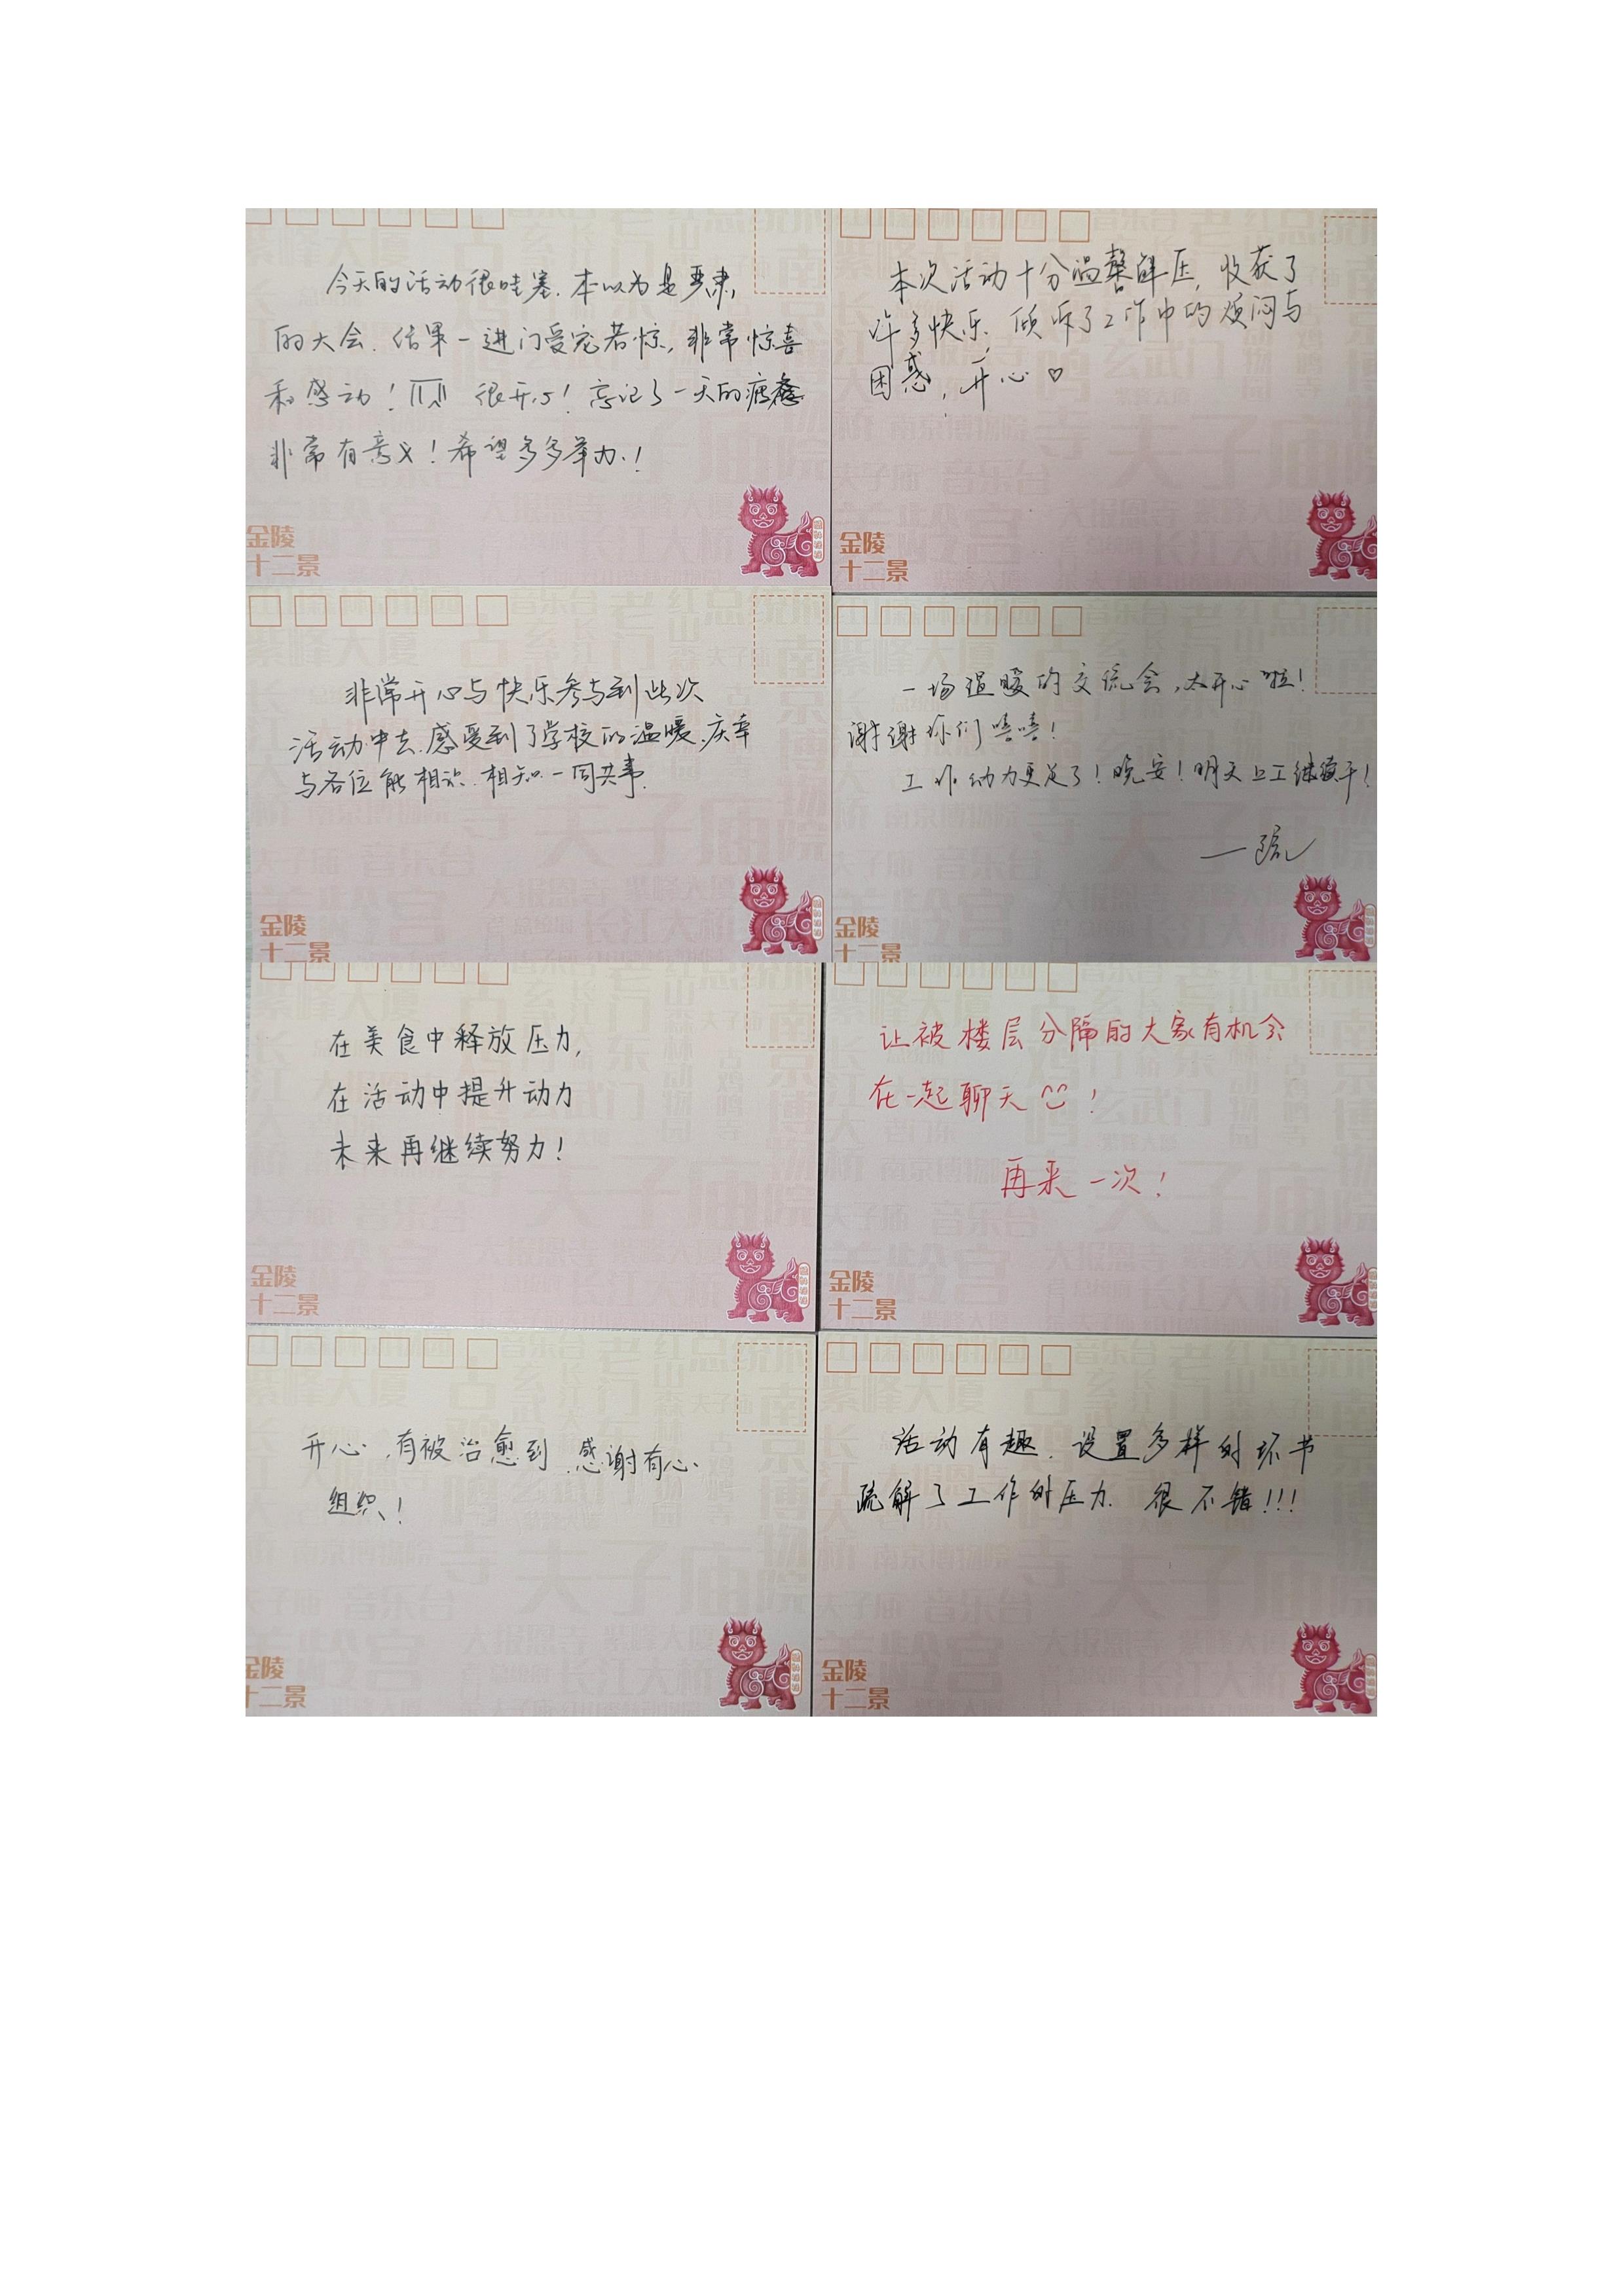 今天的活动很哇塞.本以为是严肃
的大会.结果一进门受宠若惊,非常惊喜
和感动! 很开心!忘记了一天的疲惫
非常有意义!希望多多举办!
金陵
十二景
本次活动十分温馨解压,收获了
许多快乐,倾诉了工作中的烦闷与
困惑,开心♡
金陵
十二景
非常开心与快乐参与到此次
活动中去.感受到了学校的温暖.庆幸
与各位能相识.相知.一同共事.
金陵
十二景
一场温暖的交流会,太开心啦!
谢谢你们嘻嘻!
工作动力更足了!晚安!明天上工继续干!
金陵
十二景
在美食中释放压力,
在活动中提升动力
未来再继续努力!
金陵
十二景
让被楼层分隔的大家有机会
在一起聊天!
再来一次!
金陵
十二景
开心,有被治愈到.感谢有心
组织!
金陵
十二景
活动有趣.设置多样的环节
疏解了工作的压力.很不错!!!
金陵
十二景